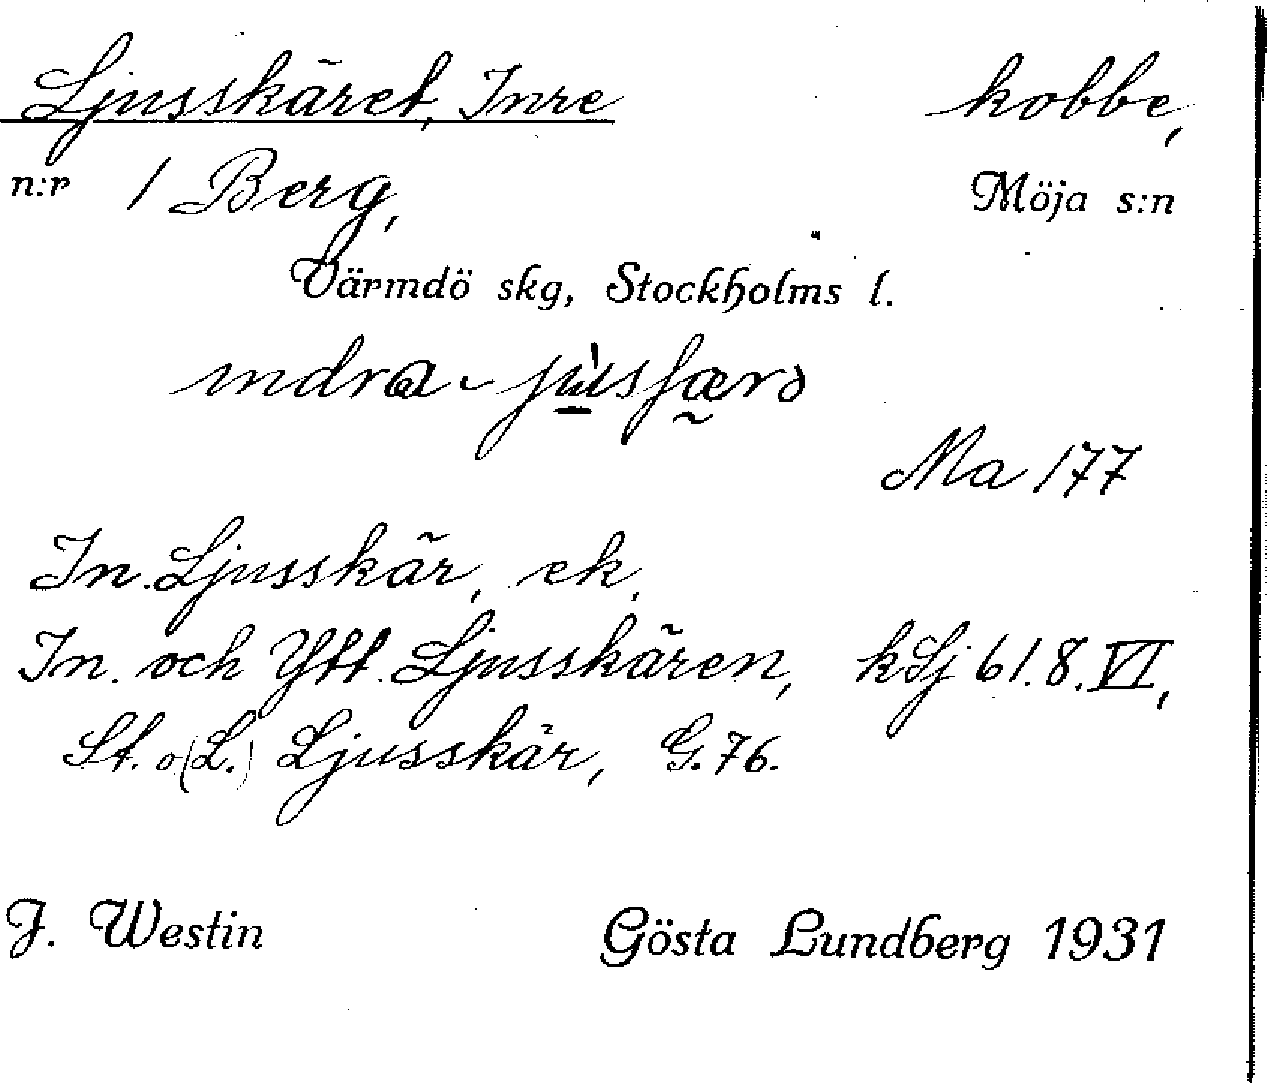 Ljusskäret, Inre kobbe,
n:r 1 Berg, Möja s:n
Värmdö skg, Stockholms l.
Ma 177
In. Ljusskär, ek,
In. och Ytt. Ljusskären, kSj 61.8.VI,
St. o(L.) Ljusskär, G.76.
J. Westin Gösta Lundberg 1931